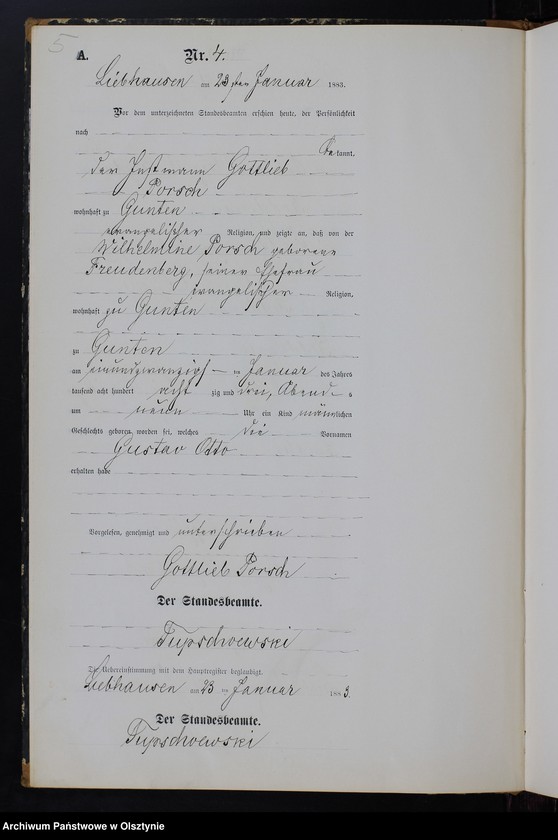 5
A.
Nr. 4.
Liebhausen am 23sten Januar 1883.
Vor dem unterzeichneten Standesbeamten erschien heute, der Persönlichkeit
nach
bekannt,
der Instmann Gottlieb
Porsch
wohnhaft zu Gunten
evangelischer Religion, und zeigte an, daß von der
Wilhelmine Porsch geborene
Freudenberg, seiner Ehefrau
evangelischer Religion,
wohnhaft zu Gunten
zu Gunten
am einundzwanzigst ten Januar des Jahres
tausend acht hundert acht zig und drei, Abend s
um neun Uhr ein Kind männlichen
Geschlechts geboren worden sei, welches die Vornamen
Gustav Otto
erhalten habe
Vorgelesen, genehmigt und unterschrieben
Gottlieb Porsch
Der Standesbeamte.
Die Uebereinstimmung mit dem Hauptregister beglaubigt.
Liebhausen am 23 ten Januar 1883.
Der Standesbeamte.
Archiwum Państwowe w Olsztynie